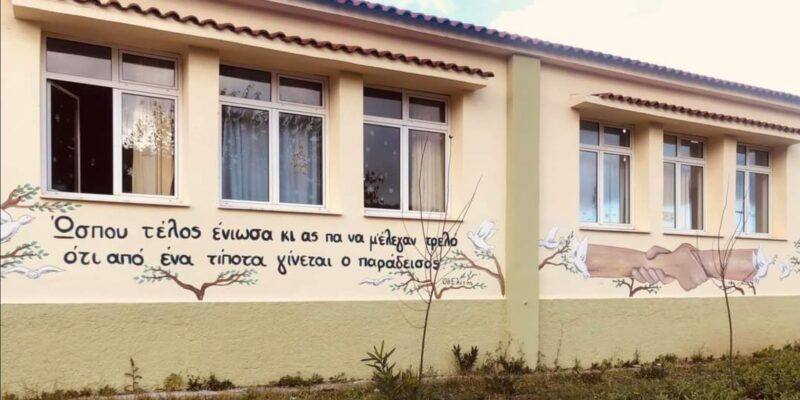 Ώσπου τέλος ένιωσα κι ας πα να μ' έλεγαν τρελό
ότι από ένα τίποτα γίνεται ο παράδεισος
Οδ. Ελύτης